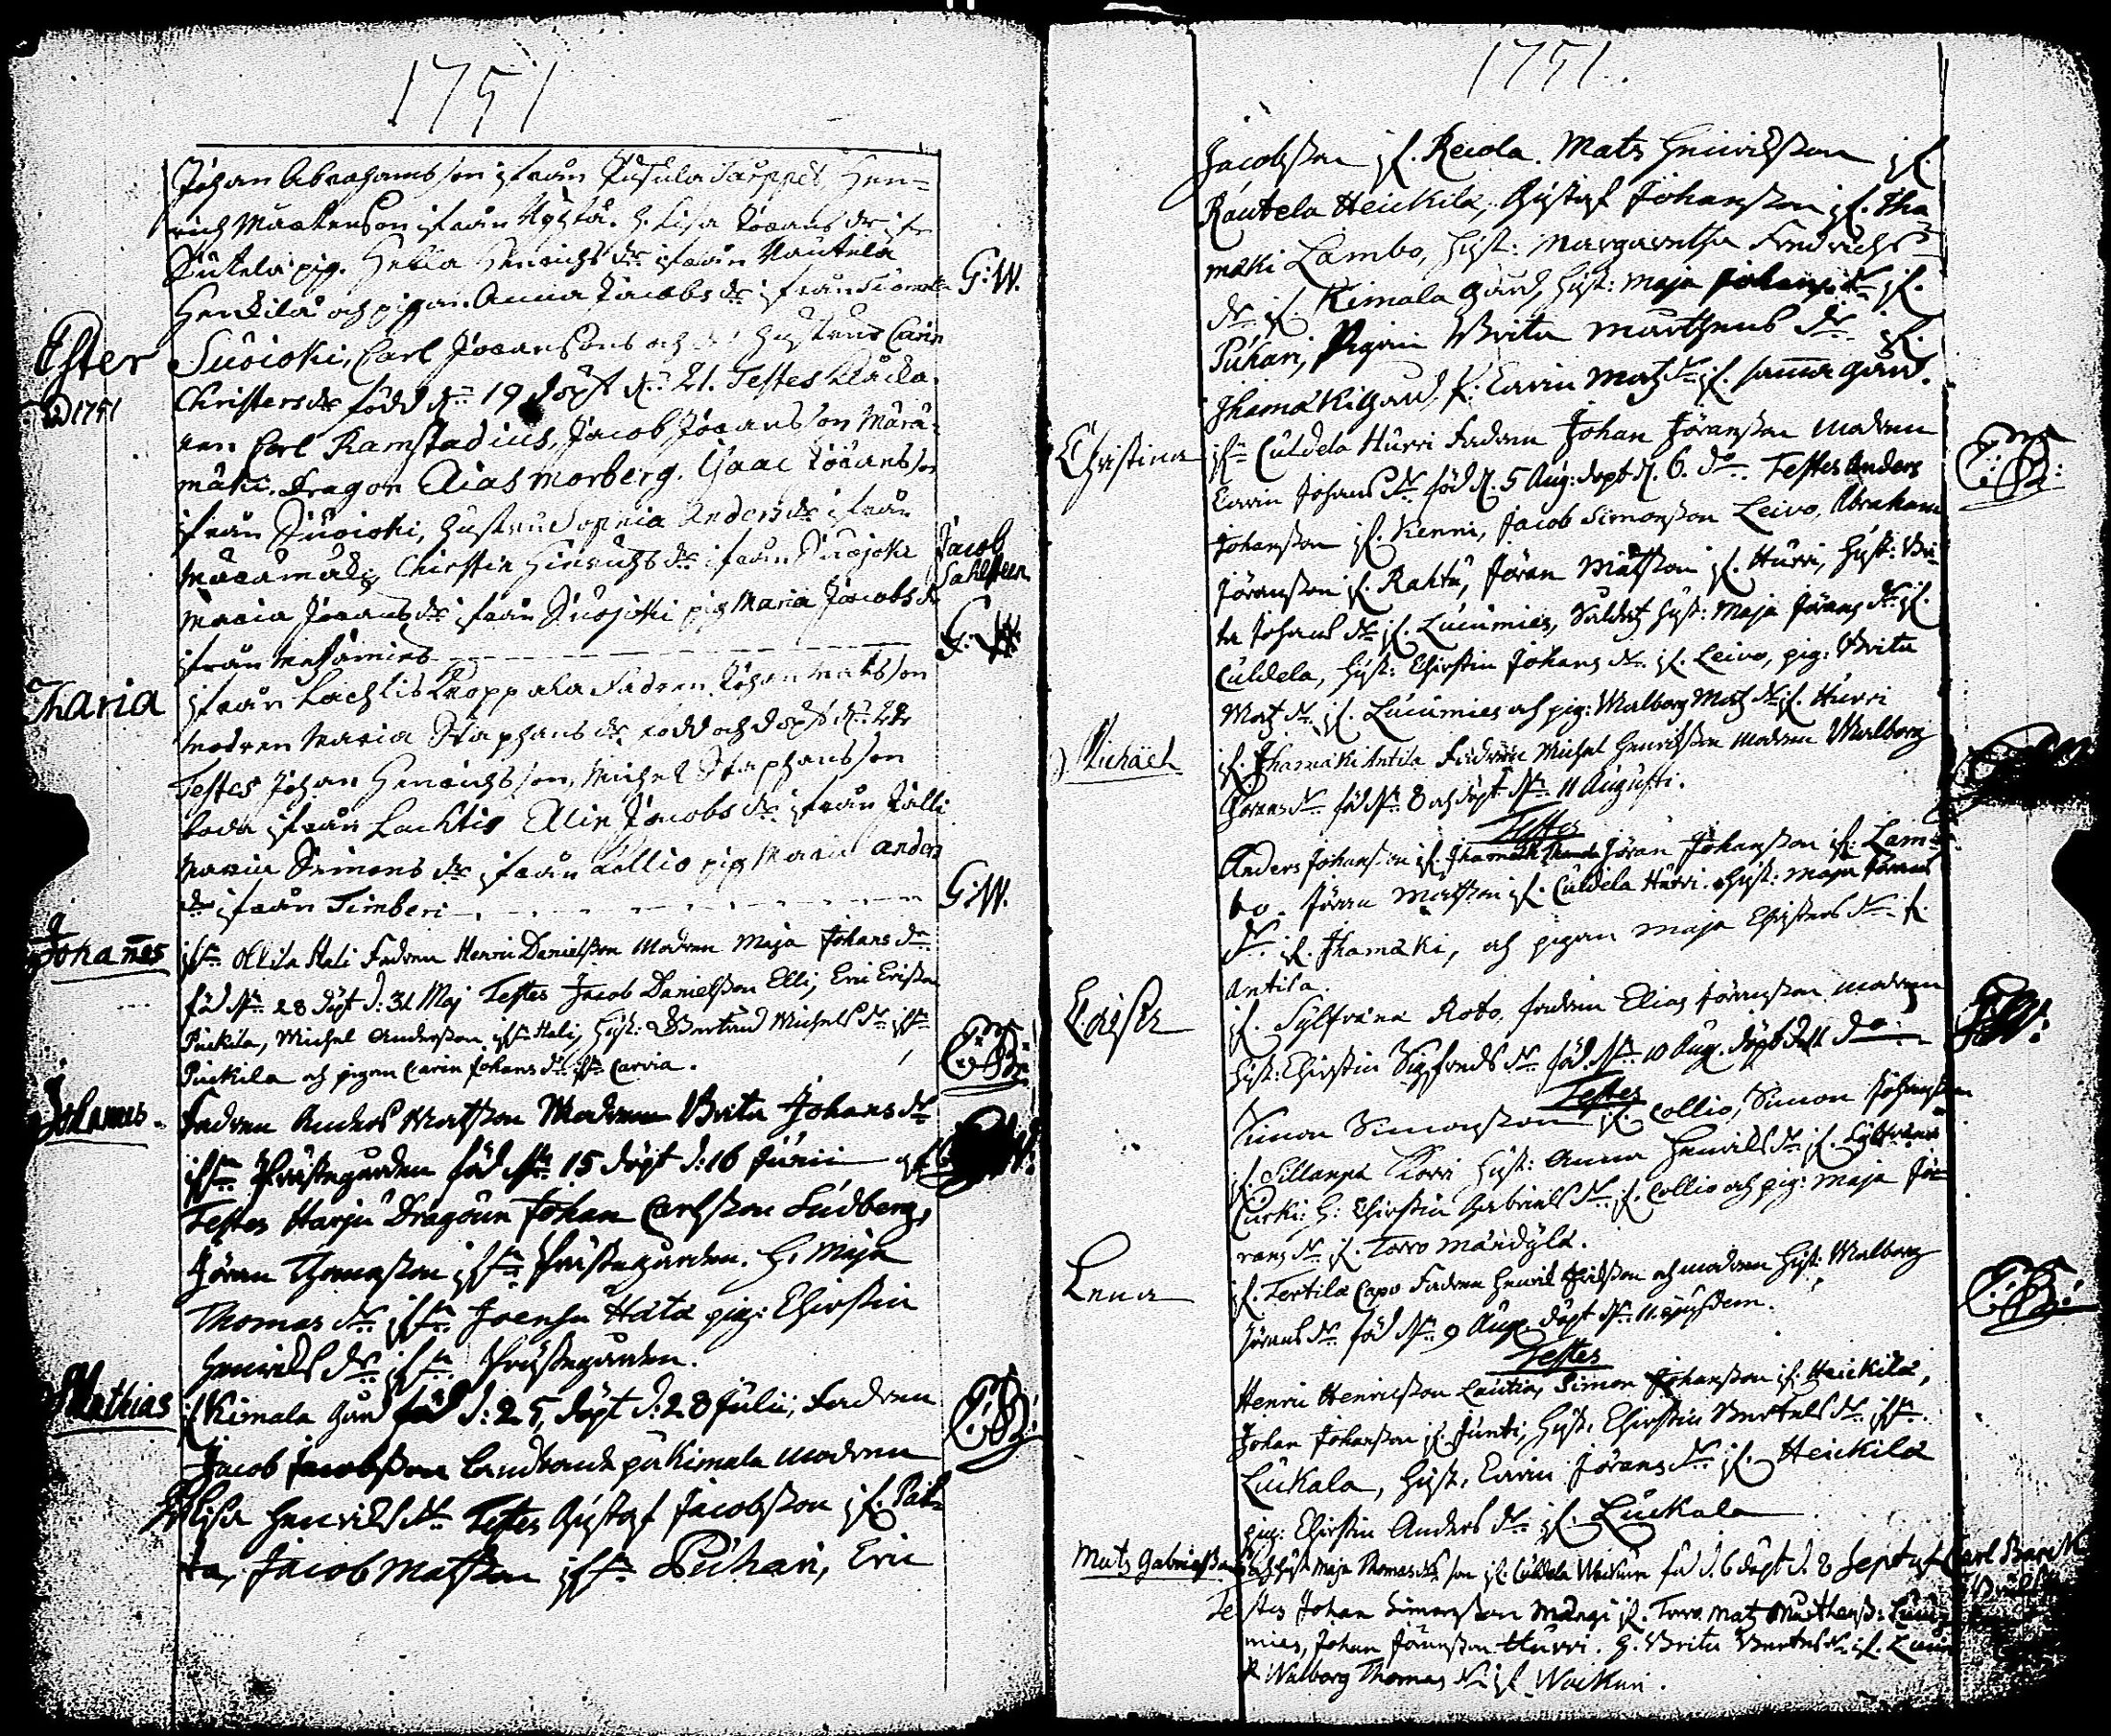 1751
Johan Abrahamsson ifrån Hen=
rich Martensson ifrån h. Lisa Jöransdr ifr
pig. Henrichsdr ifrån Rautela
Heickilä och pigan Anna Jacobsdr ifrån
G:W.
Ester
1751
Suoioki, Carl Jöransons och hustrus Carin
Christersdr född dn 19 döpt dn 21. Testes klåcka-
ren Carl Ramstadius, Jacob Jöransson Märä-
mäki. Dragon Elias Morberg. Isaac Jöransson
ifrån Suoioki, hustru Sophia Andersdr ifrån
Märämäki, Christin Henrichsdr ifrån Suojoki
Maria Jöransdr ifrån Suojoki pig Maria Jacobsdr
ifrån
Jacob
Sahlsteen
G:W.
Maria
ifrån Lachtis Knoppala Fadren Johan Matsson
Modren Maria Staphansdr född och döpt dn
Testes Johan Henrichsson, Michel Staphansson
ifrån Lachtis Elin Jacobsdr ifrån Kalli
Maria Simonsdr ifrån Kallio pig Maria Anders
dr ifrån Timberi
G:W.
Johanes
ifrn Ollila Hali Fadren Henric Danielsson Modren Maja Johansdr
föd dn 28 döpt d: 31 Maj Testes Jacob Danielsson Elli, Eric Ericsson
Puckila, Michel Andersson ifrn Hali, Hust: Bertrud Michelsdr ifrn
Puckila och pigan Carin Johansdr ifrn Carvia.
C:B:
Johannes
Fadren Anders Matsson Modren Brita Johansdr
ifrn Prästegården föd dn 15 döpt d: 16 Junii af
Testes Harju Dragoun Johan Carlsson Ludberg,
Jöran Thomasson ifrn Prästegården. H: Maja
Thomasdr ifrn Joensu Hata pig: Christin
Henrichsdr ifrn Prästegården.
Mathias
if Kimala Gård föd d: 25, döpt d: 28 Julii, Fadren
Jacob Jacobsson Landbonde på Kimala modren
Elisa Henricksdr Testes Gustaf Jacobsson if. Pat-
ta, Jacob Matsson ifrn Puhari, Eric
C:B:
1751.
Jacobsson if. Reiola. Mats Henricksson if.
Rautela Heickila, Gustaf Johansson if. Iha-
maki Lambo, Hust: Margaretha Fredrichs-
dr if. Kimala Gård, Hust: Maja Johansdr if.
Puhari, Pigan Brita Marthensdr if.
Ihamäki gård, p: Carin Matsdr if. samma gård.
Christina
ifrn Culdela Hurri Fadren Johan Jöransson Modren
Carin Johansdr föd d. 5 Aug: döpt d. 6. do. Testes Anders
Johansson if. Kenni, Jacob Simonsson Leivo, Abraham
Jöransson if. Rahtu, Jöran Matsson if. Hurri, Hust: Bri-
ta Johansdr if. Lucumies, Soldatz Hust: Maja Jöransdr if.
Culdela, Hust: Christin Johansdr if. Leivo, pig: Brita
Matzdr if. Lucumies och pig: Walborg Matzdr if. Hurri
C:B:
Michäel
if. Ihamäki Antila Fadren Michel Henricksson Modren Walborg
Göransdr föd dn 8 och döpt dn 11 Augusti.
Testes
Anders Johansson if. Jöran Johansson if. Lam-
bo. Jöran Matsson if. Culdela Hurri. Hust: Maja Jörans
dr if. Ihamäki, och pigan Maja Christersdr if.
Antila.
Caisa
if. Sylfvänä Roto. Fadren Elias Jöransson modren
Hust: Christin Sigfredsdr föd dn 10 Aug. döpt d. 11 do
Testes
Simon Simonsson if. Collio, Simon Johansson
if. Sillanpä Kori Hust: Anna Henricksdr if. Sylfvänä
Curki: H: Christin Gabrielsdr if. Collio och pig: Maja Jö-
ransdr if. Torro Mändylä.
G:W:
Lena
if. Tertila Capo Fadren Henrick Ericksson och modren Hust: Walborg
Jöransdr föd dn 9 Aug. döpt dn 11. ejusdem.
Testes
Henric Henricsson Lautia, Simon Johansson if. Heickilä,
Johan Johansson if. Junti, Hust: Christin Bertelsdr ifrn
Luckala, Hust. Carin Jöransdr if. Heickilä
pig: Christin Andersdr if. Luckala
C:B:
Mats Gabrielsson och Hust Maja Thomasdr son if. Culdela Wockuri föd d. 6 döpt d. 8 Sept af Carl Barck
Testes Johan Simonsson Mängi if. Torro Matz Marthenss: Lucu-
mies, Johan Jöransson Hurri. H. Brita Bertelsdr if.
P. Walborg Thomasdr if Wockuri.